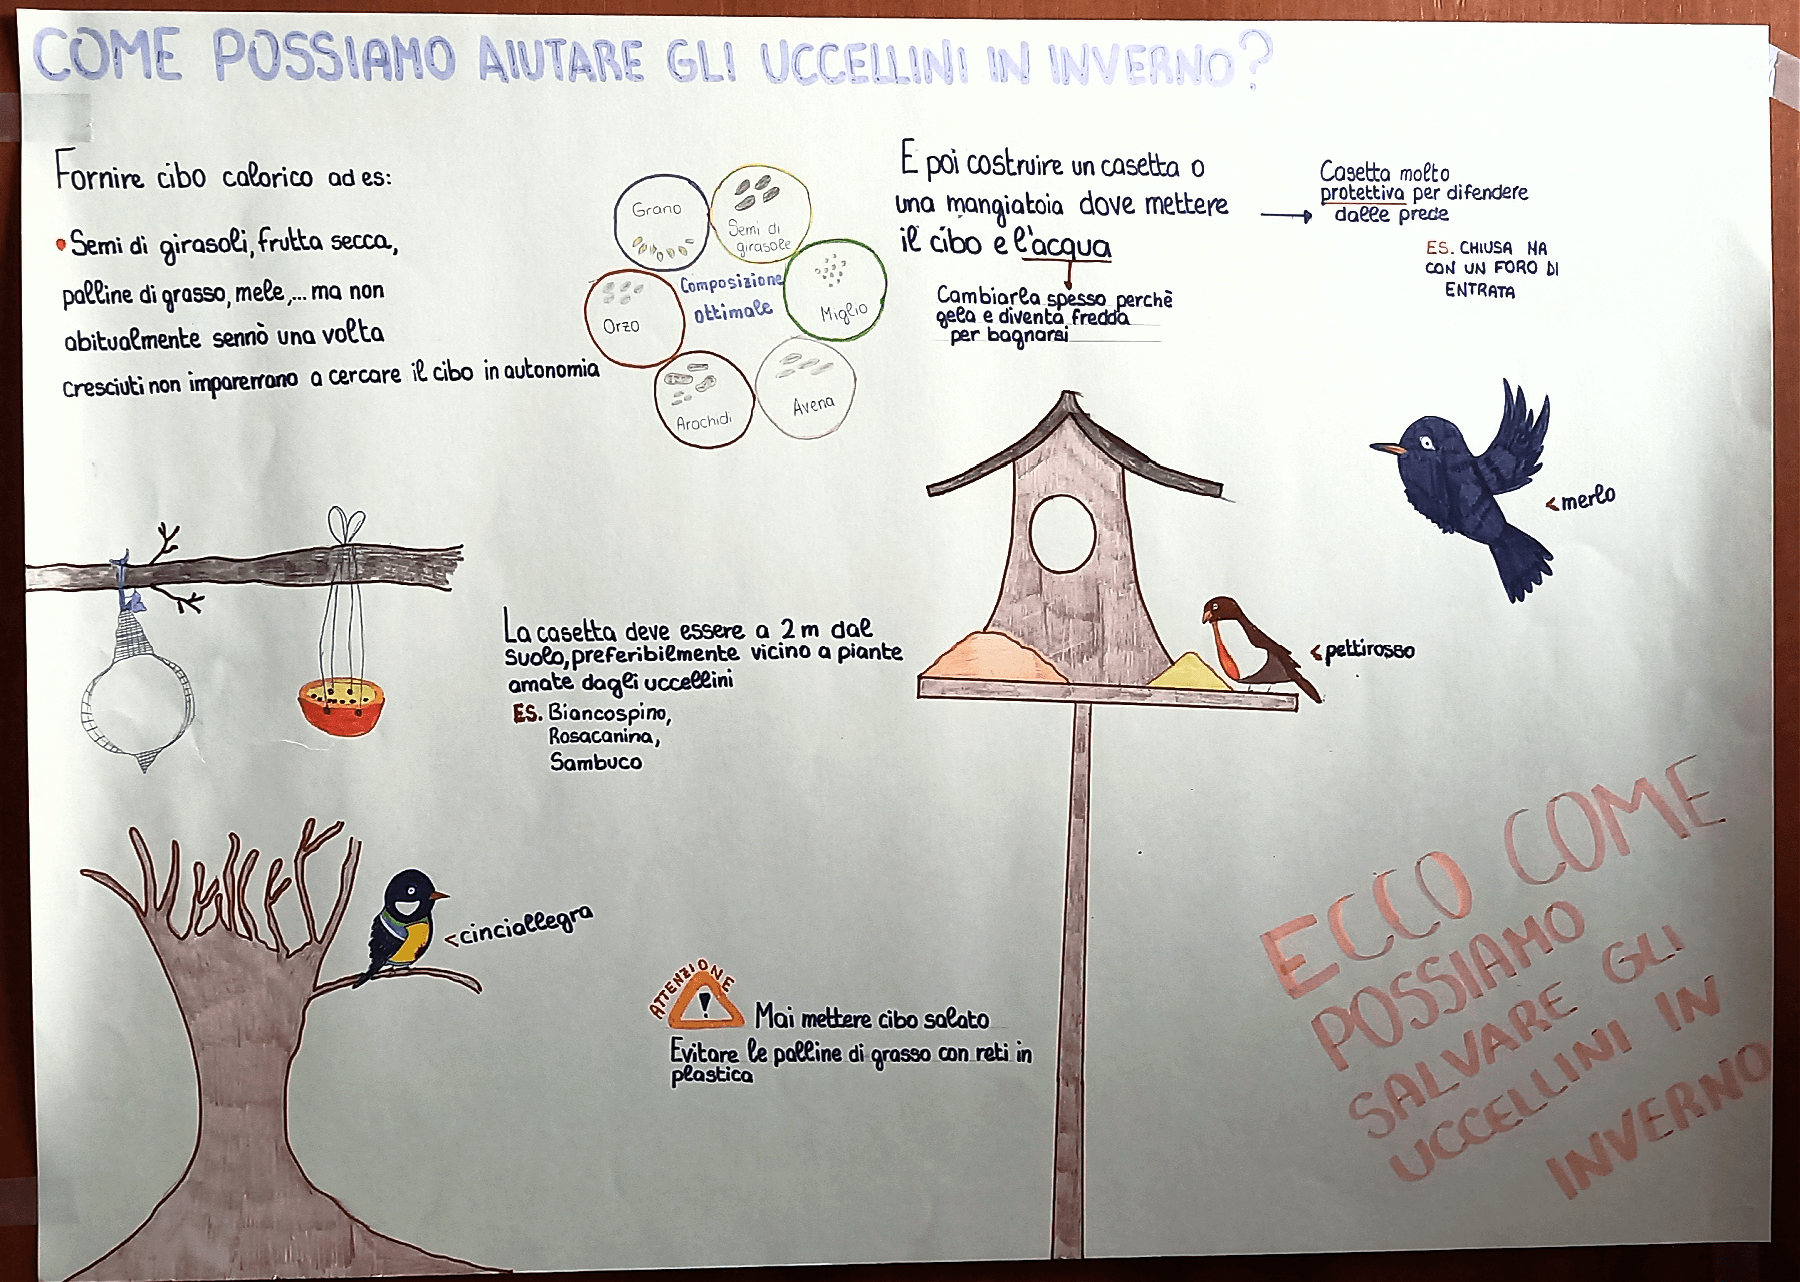 COME POSSIAMO AIUTARE GLI UCCELLINI IN INVERNO?
Fornire cibo calorico ad es:
Semi di girasoli, frutta secca,
palline di grasso, mele,... ma non
abitualmente sennò una volta
cresciuti non imparerrano a cercare il cibo in autonomia
Grano
Semi di
girasole
Composizione
ottimale
Orzo
Miglio
Arachidi
Avena
E poi costruire un casetta o
una mangiatoia dove mettere
il cibo e l'acqua
Cambiarla spesso perchè
gela e diventa fredda
per bagnarsi
Casetta molto
protettiva per difendere
dalle prede
ES. CHIUSA MA
CON UN FORO DI
ENTRATA
<merlo
<pettirosso
La casetta deve essere a 2m dal
suolo, preferibilmente vicino a piante
amate dagli uccellini
ES. Biancospino,
Rosacanina,
Sambuco
<cinciallegra
ATTENZIONE
!
Mai mettere cibo salato
Evitare le palline di grasso con reti in
plastica
ECCO COME
POSSIAMO
SALVARE GLI
UCCELLINI IN
INVERNO